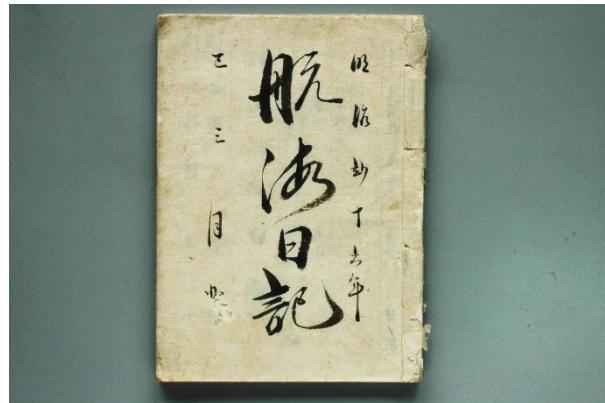 明治十六年
航海日記
三月